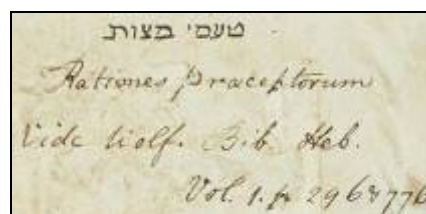 טעמי מצות
Rationes præceptorum
Vide Wolf. Bib. Heb.
Vol. 1. p. 296 & 776